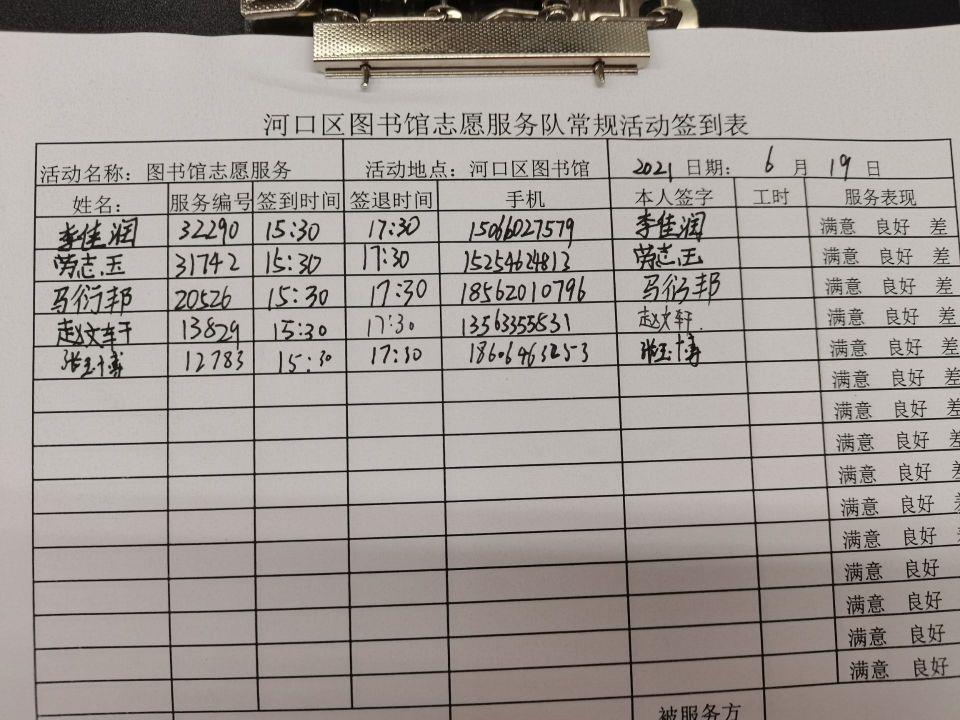 河口区图书馆志愿服务队常规活动签到表
活动名称：图书馆志愿服务 活动地点：河口区图书馆 2021 日期： 6 月 19 日
姓名： 服务编号 签到时间 签退时间 手机 本人签字 工时 服务表现
李佳润 32290 15:30 17:30 15066027579 李佳润 满意 良好 差
劳志玉 31742 15:30 17:30 15254624813 劳志玉 满意 良好 差
马衍邦 20526 15:30 17:30 18562010796 马衍邦 满意 良好 差
赵文轩 13829 15:30 17:30 13563355831 赵文轩 满意 良好 差
张玉博 12783 15:30 17:30 18606463253 张玉博 满意 良好 差
满意 良好 差
满意 良好 差
满意 良好 差
满意 良好 差
满意 良好 差
满意 良好 差
满意 良好
满意 良好
满意 良好
满意 良好
被服务方